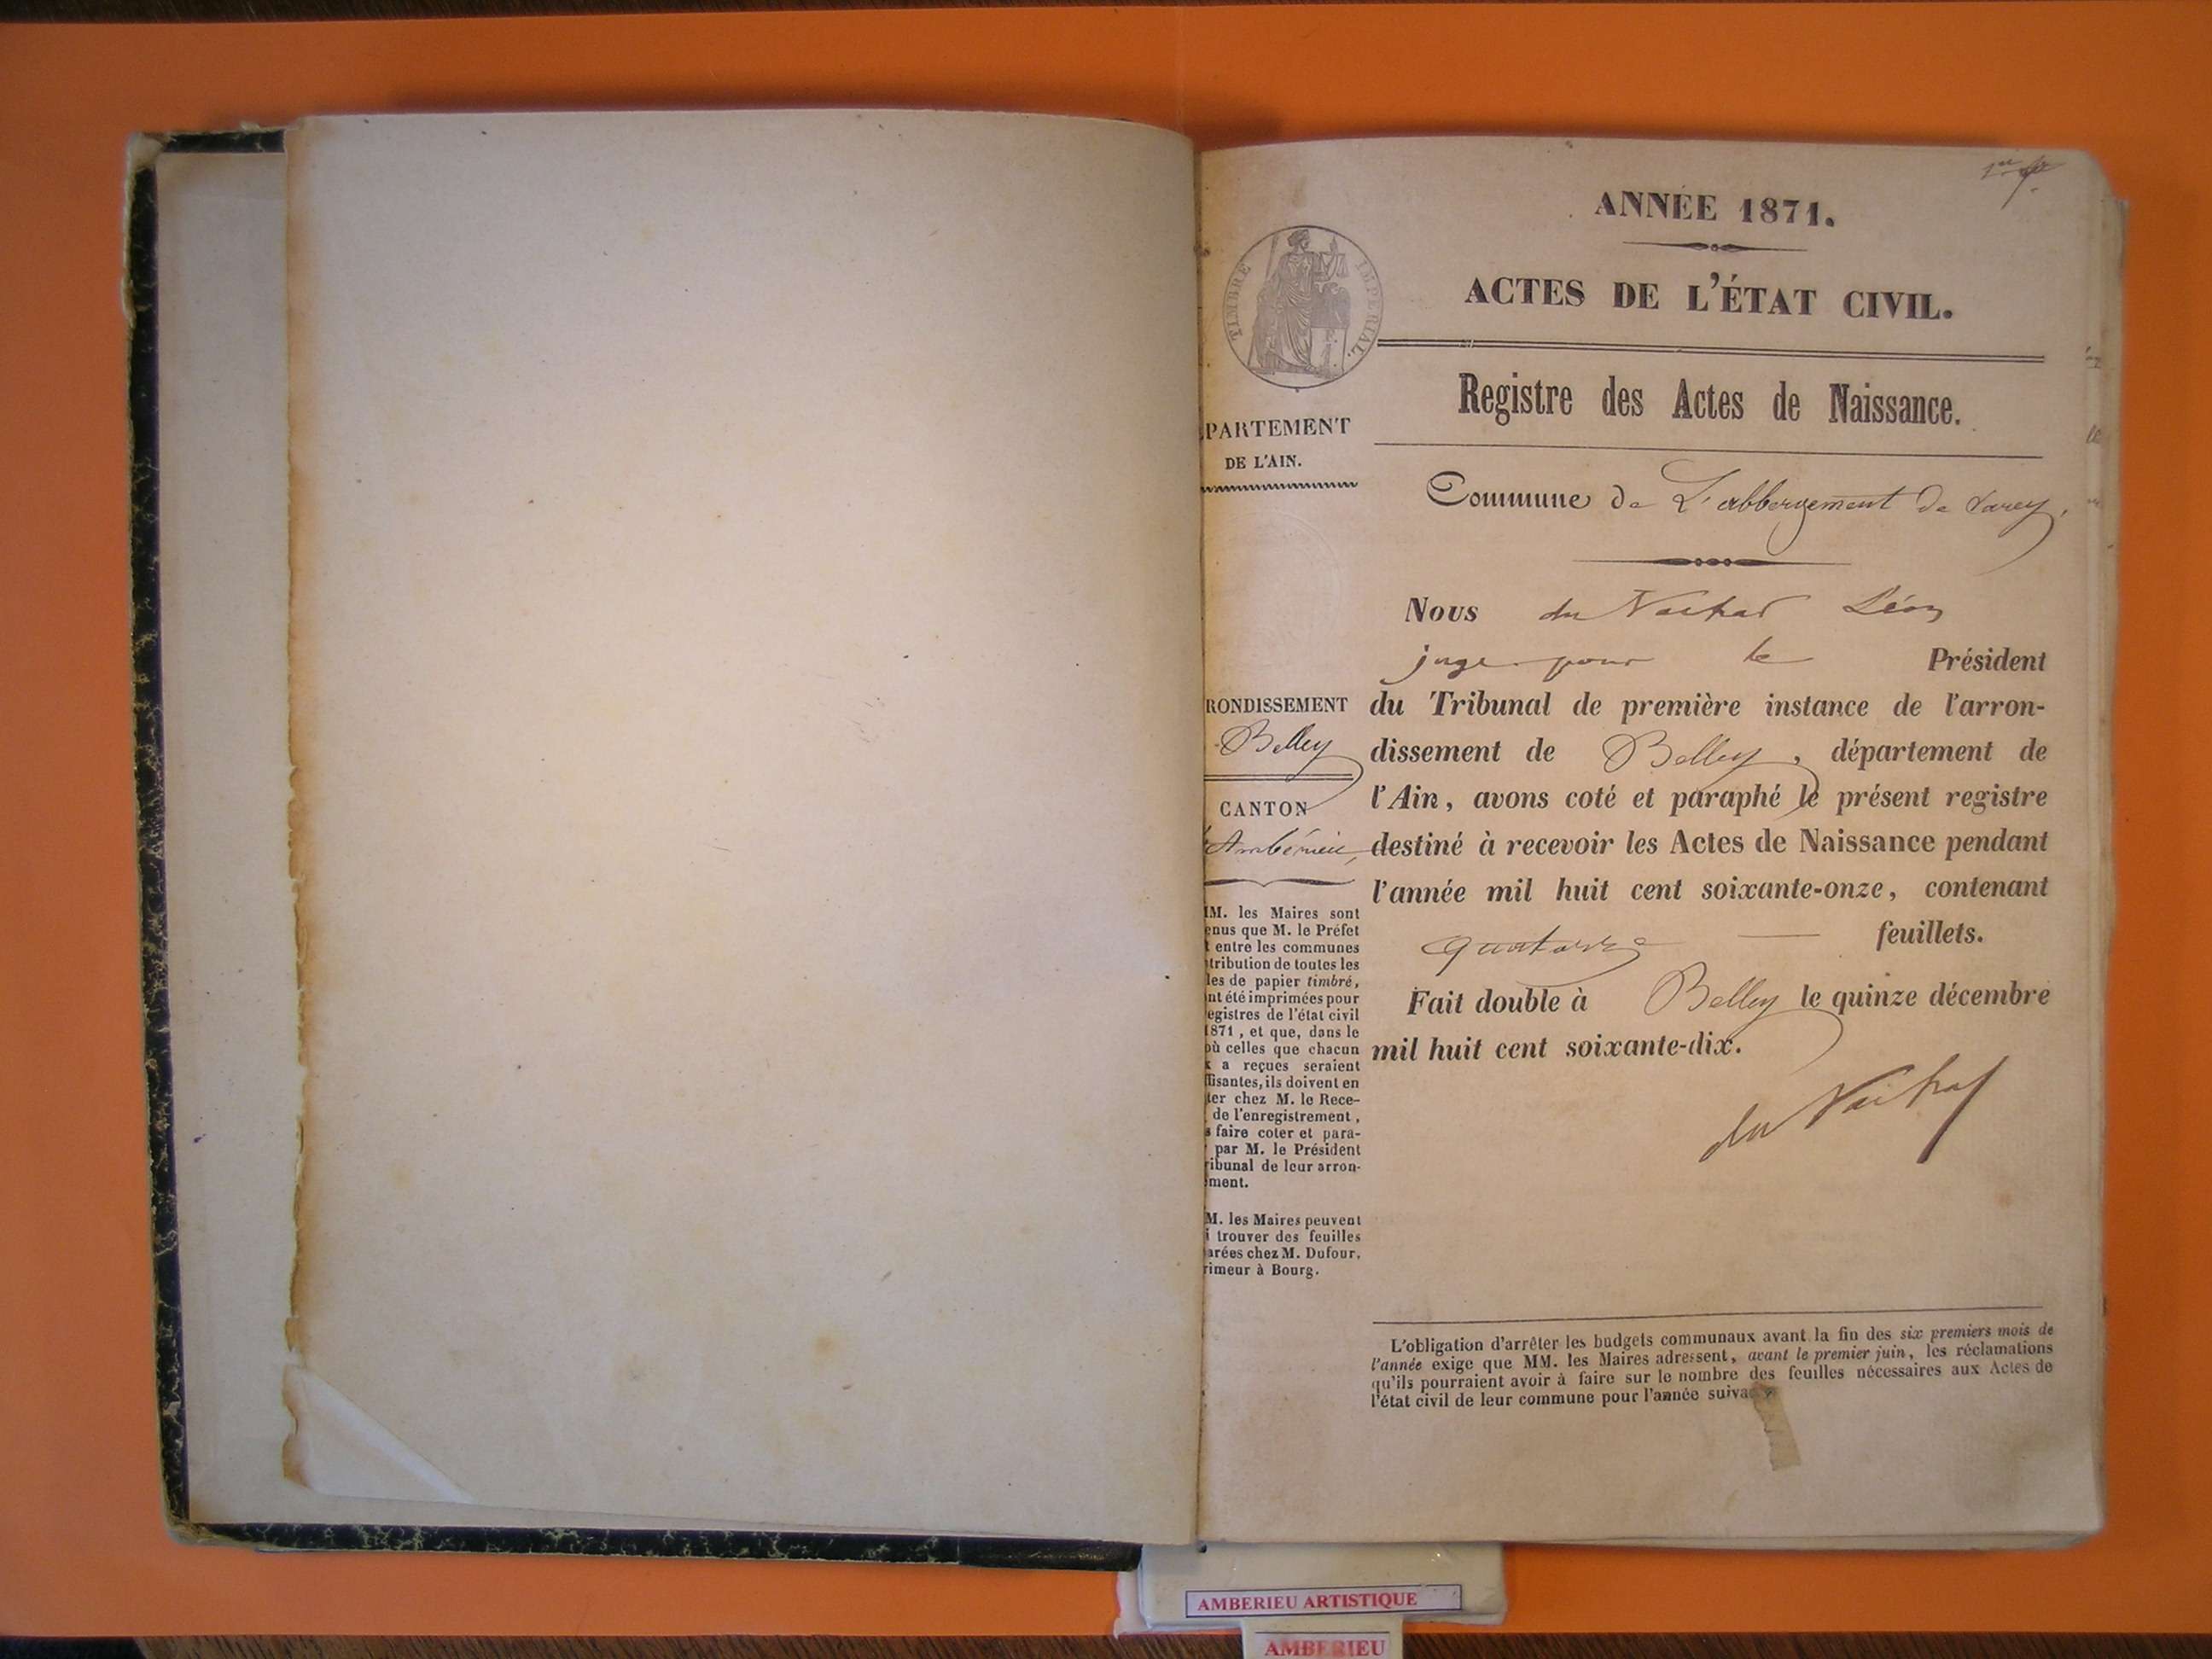 ANNÉE 1871.
ACTES DE L'ÉTAT CIVIL.
TIMBRE IMPÉRIAL.
Registre des Actes de Naissance.
PARTEMENT
DE L'AIN.
Commune de L'abbergement de Varey,
Nous du Nachat Léon
juge pour le Président
RONDISSEMENT
Belley
CANTON
Ambérieu,
du Tribunal de première instance de l'arron-
dissement de Belley, département de
l'Ain, avons coté et paraphé le présent registre
destiné à recevoir les Actes de Naissance pendant
l'année mil huit cent soixante-onze, contenant
quatorze feuillets.
Fait double à Belley le quinze décembre
mil huit cent soixante-dix.
du Nachat
M. les Maires sont
enus que M. le Préfet
t entre les communes
tribution de toutes les
les de papier timbré,
nt été imprimées pour
egistres de l'état civil
1871, et que, dans le
où celles que chacun
x a reçues seraient
ffisantes, ils doivent en
ter chez M. le Rece-
de l'enregistrement,
s faire coter et para-
par M. le Président
ribunal de leur arron-
ment.
M. les Maires peuvent
i trouver des feuilles
arées chez M. Dufour,
rimeur à Bourg.
L'obligation d'arrêter les budgets communaux avant la fin des six premiers mois de
l'année exige que MM. les Maires adressent, avant le premier juin, les réclamations
qu'ils pourraient avoir à faire sur le nombre des feuilles nécessaires aux Actes de
l'état civil de leur commune pour l'année suiva
AMBERIEU ARTISTIQUE
AMBERIEU